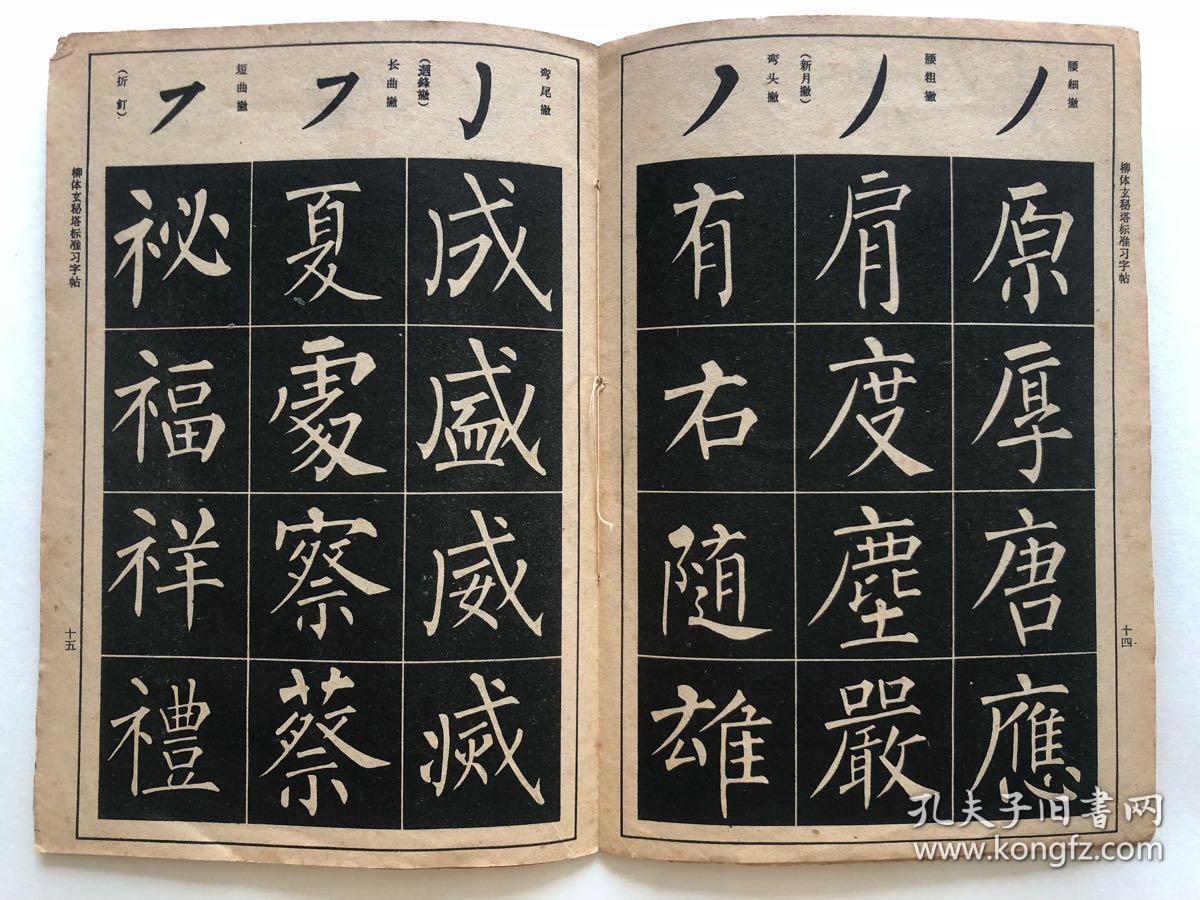 柳体玄秘塔标准习字帖
十四
腰細撇
原厚唐應
腰粗撇
肩度塵嚴
弯头撇
(新月撇)
有右随雄
弯尾撇
(迴鋒撇)
成盛威滅
长曲撇
夏處察蔡
短曲撇
(折釘)
祕福祥禮
柳体玄秘塔标准习字帖
十五
孔夫子旧书网
www.kongfz.com